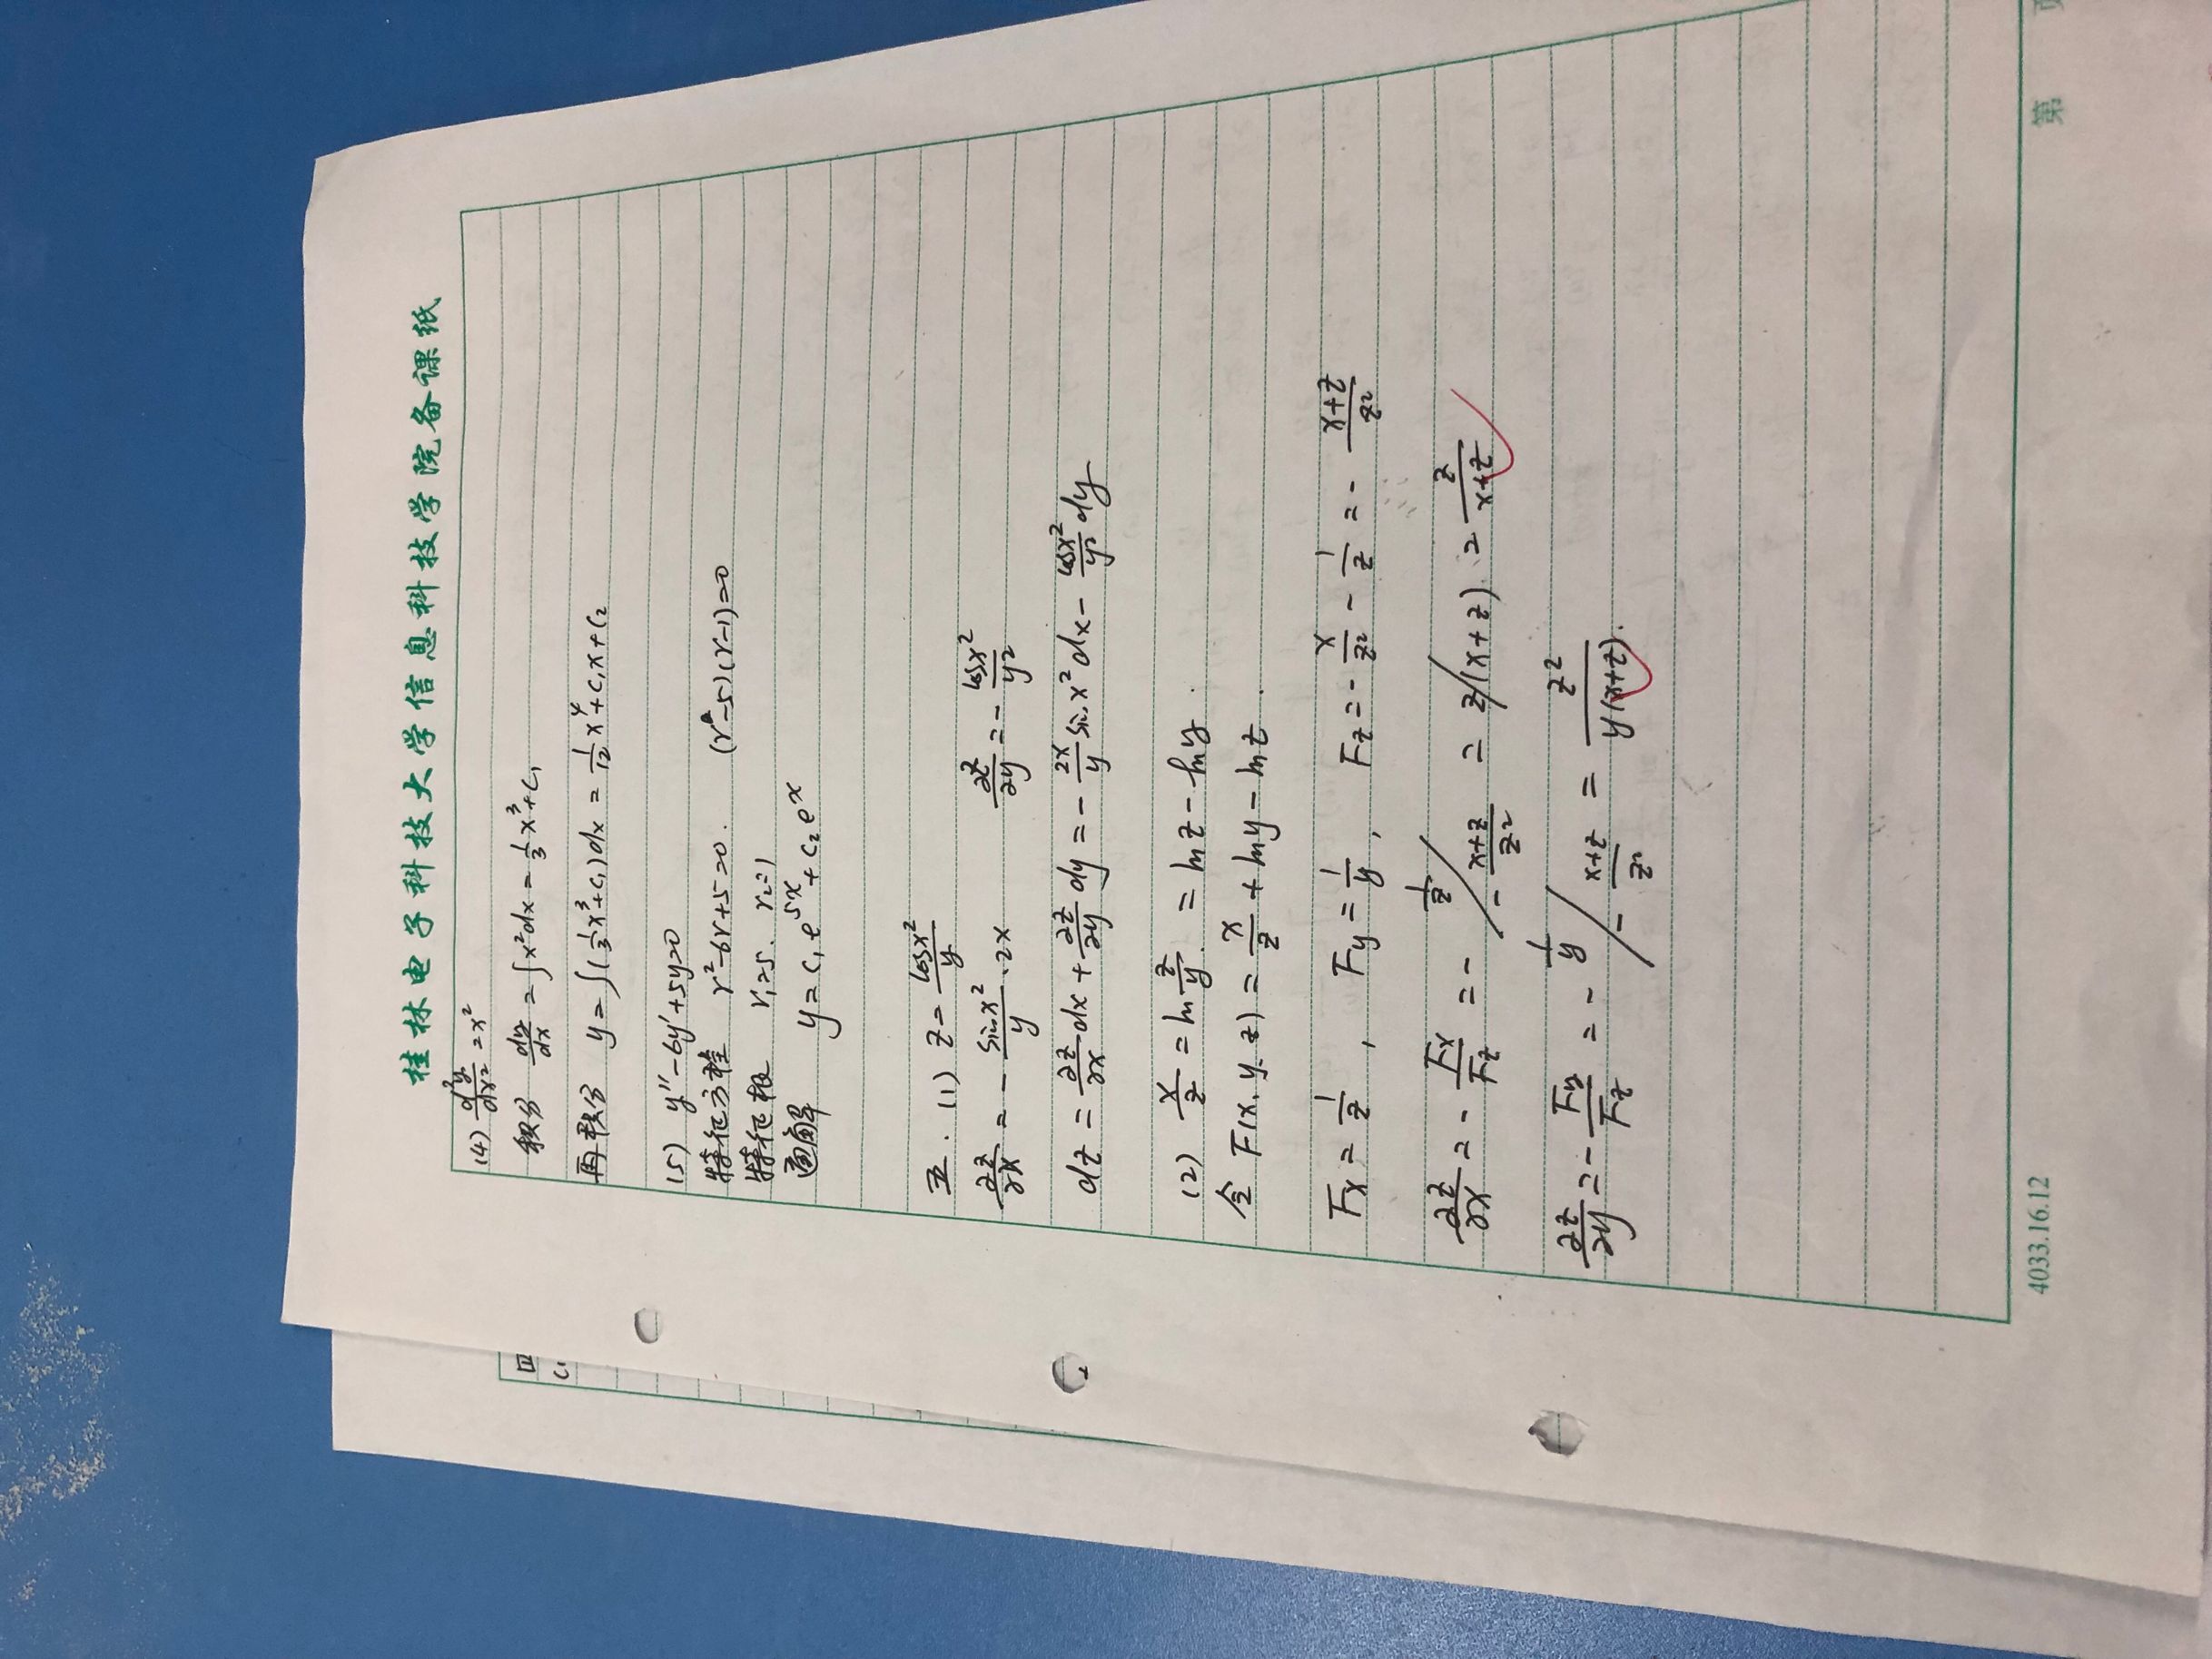 桂林电子科技大学信息科技学院备课纸
四
(1
(4) d²y/dx² = x²
积分 dy/dx = ∫x²dx = 1/3 x³+C₁
再积分 y = ∫(1/3 x³+C₁)dx = 1/12 x⁴+C₁x+C₂
(5) y''-6y'+5y=0
特征方程 r²-6r+5=0. (r-5)(r-1)=0
特征根 r₁=5. r₂=1
通解 y = C₁e^{5x}+C₂e^x
五. (1) z = cosx²/y
∂z/∂x = - sinx²/y · 2x ∂z/∂y = - cosx²/y²
dz = ∂z/∂x dx + ∂z/∂y dy = - 2x/y sinx² dx - cosx²/y² dy
(2) x/z = ln z/y. = lnz - lny.
令 F(x, y, z) = x/z + lny - lnz.
Fx = 1/z , Fy = 1/y , Fz = - x/z² - 1/z = - (x+z)/z²
∂z/∂x = - Fx/Fz = - 1/z / - (x+z)/z² = z/(x+z) = z/(x+z)
∂z/∂y = - Fy/Fz = - 1/y / - (x+z)/z² = z²/y(x+z).
4033.16.12
第 页